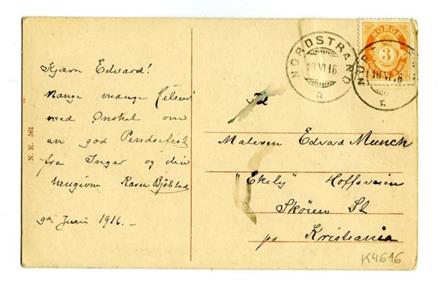 Kjære Edvard!
Mange mange hilsener
med Ønsket om
en god Pinsefest
fra Inger og din
hengivne Karen Bjølstad
9de Juni 1916.
N. K. 561
Til
Maleren Edvard Munch
"Ekely" Hoffsveien
Skøien St
pr Kristiania
K4616
NORDSTRAND
10 VI 16
NORGE
3